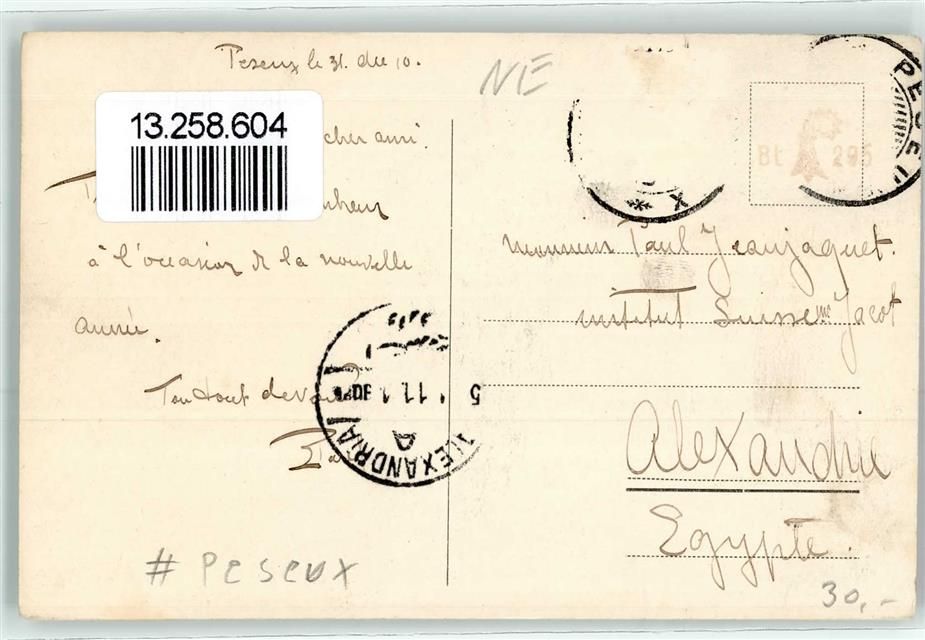 Peseux le 31. déc 10.
NE
13.258.604
cher ami.
à l'occasion de la nouvelle
année.
Ton tout dévoué
# PESEUX
PESEU
X
Bt 295
Monsieur Paul Jeanjaquet.
institut Suisse Me Jacot
Alexandrie
Egypte.
ALEXANDRIA
A
5 11 1
30,-